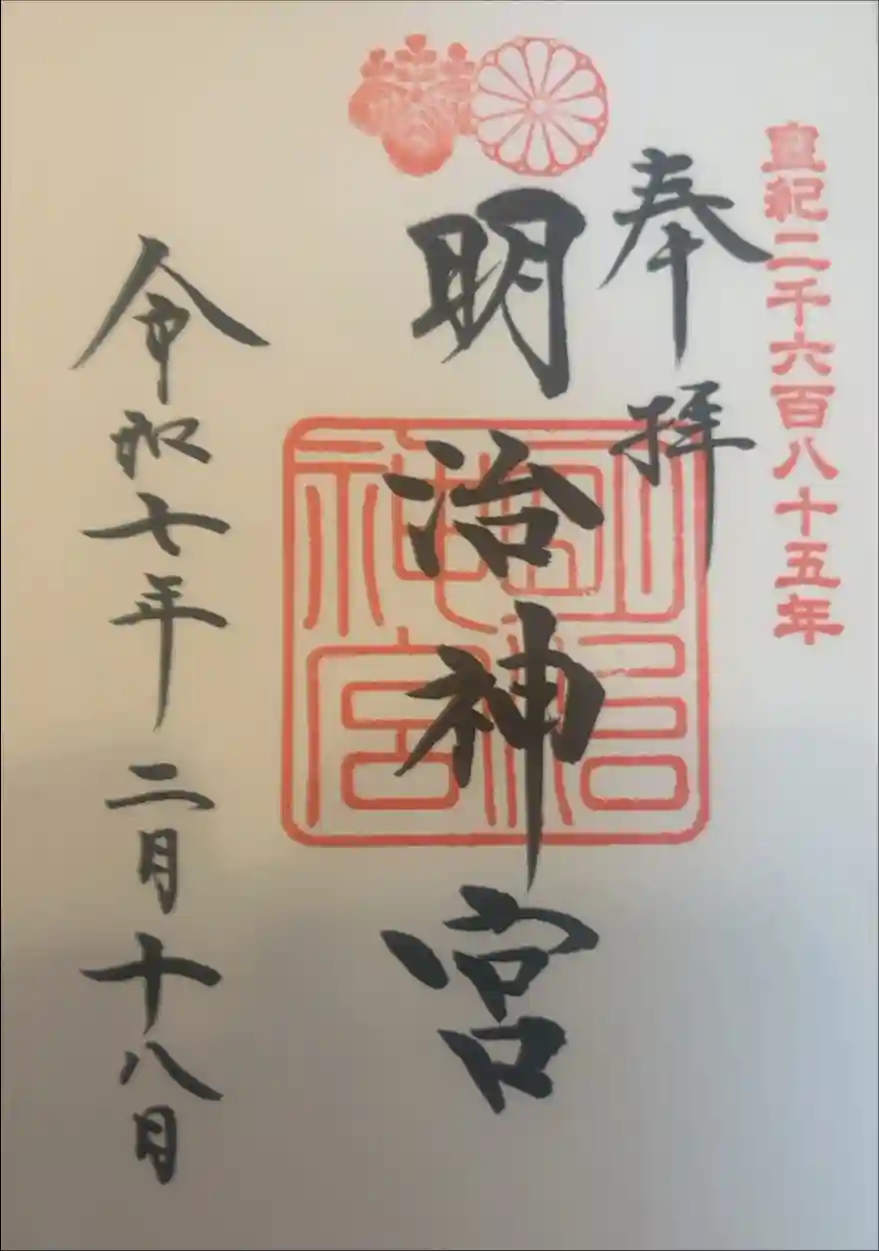 皇紀二千六百八十五年
奉拝
明治神宮
明治神宮
令和七年二月十八日